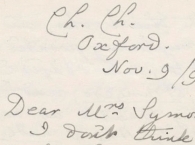 Ch. Ch.
Oxford.
Nov. 9/9
Dear Mrs Symo
I don't think